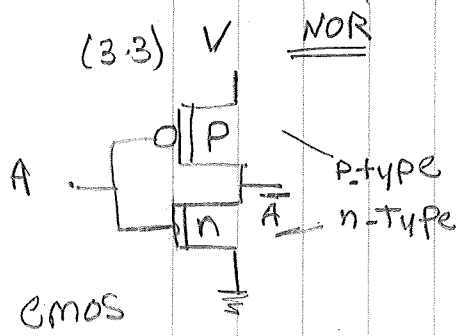 (3.3) V NOR
P
A
p-type
Ā
n n-type
cmos